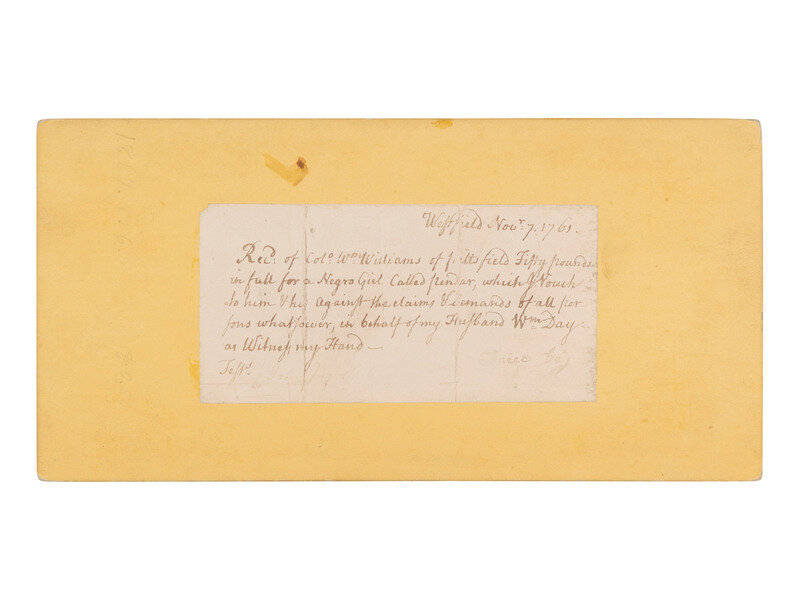 Westfield Novr. 7. 1761.
Recd. of Colo. Wm Williams of pittsfield Fifty pounds
in full for a Negro Girl Called pendar, which I Vouch
to him & his against the claims & demands of all per
sons whatsoever, in behalf of my Husband Wm. Day
as Witness my Hand —
Day
Testr.